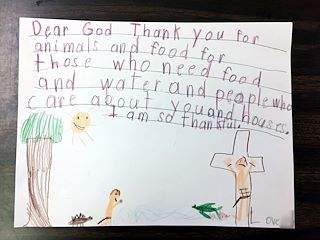 Dear God Thank you for
animals and food for
those who need food
and water and people who
care about you and houses.
I am so thankful.
Love